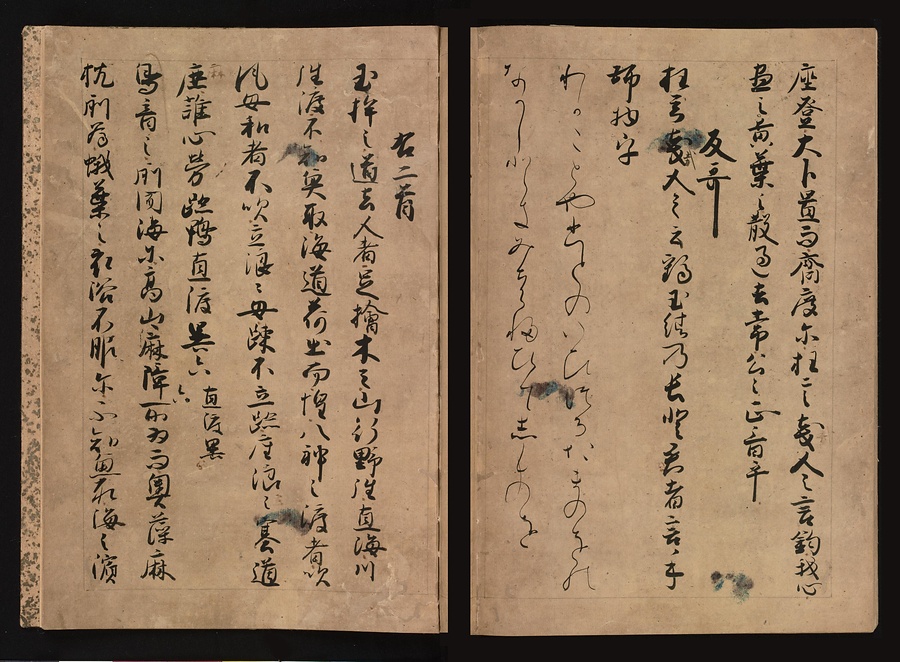 座登大卜置而齋度尓枉言哉人之言釣我心
盡之黄葉之散過去常公之正香乎
反哥
枉言哉人之云鶴玉緒乃長登君者言手
師物字
わかことやひとのいひつるたまのをの
なかしときみはいひてしものを
右二首
玉桙之道去人者足檜木之山行野徃直海川
徃渡不知魚取海道荷出而惶八神之渡者吹
風母和者不吹立浪之母踈不立跡座浪之塞道
麻誰心勞跡鴨直渡異六 直渡異六
鳥音之所聞海尓高山麻障所為而奥藻麻
枕所為蛾葉之衣浴不服尓不知魚取海之濱